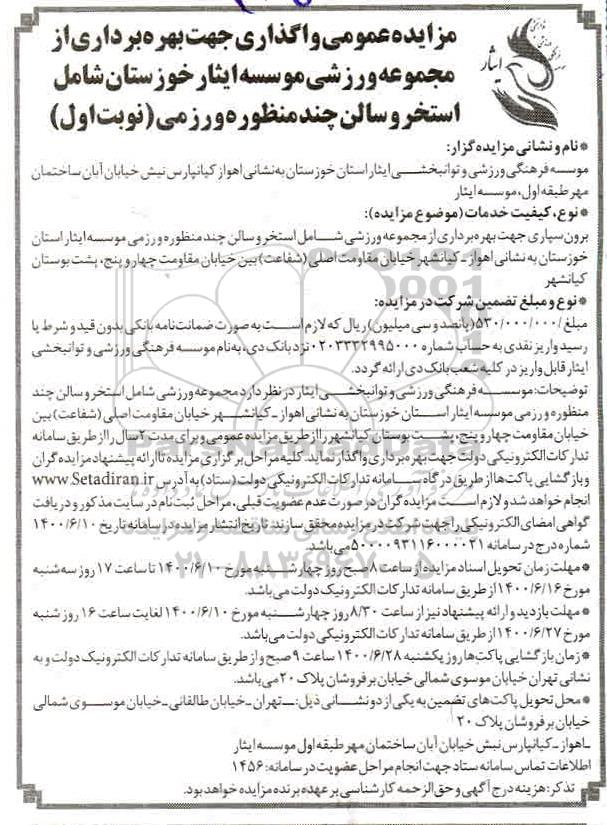 مزایده عمومی واگذاری جهت بهره برداری از
مجموعه ورزشی موسسه ایثار خوزستان شامل
استخر و سالن چند منظوره ورزمی (نوبت اول)
ایثار
*نام و نشانی مزایده گزار:
موسسه فرهنگی ورزشی و توانبخشی ایثار استان خوزستان به نشانی اهواز کیانپارس نبش خیابان آبان ساختمان
مهر طبقه اول، موسسه ایثار
*نوع، کیفیت خدمات (موضوع مزایده):
برون سپاری جهت بهره برداری از مجموعه ورزشی شامل استخر و سالن چند منظوره ورزمی موسسه ایثار استان
خوزستان به نشانی اهواز ـ کیانشهر خیابان مقاومت اصلی (شفاعت) بین خیابان مقاومت چهار و پنج، پشت بوستان
کیانشهر
*نوع و مبلغ تضمین شرکت در مزایده:
مبلغ /۵۳۰/۰۰۰/۰۰۰ (پانصد و سی میلیون) ریال که لازم است به صورت ضمانت نامه بانکی بدون قید و شرط یا
رسید واریز نقدی به حساب شماره ۰۲۰۳۳۳۲۹۹۵۰۰۰ نزد بانک دی، به نام موسسه فرهنگی ورزشی و توانبخشی
ایثار قابل واریز در کلیه شعب بانک دی ارائه گردد.
توضیحات: موسسه فرهنگی ورزشی و توانبخشی ایثار در نظر دارد مجموعه ورزشی شامل استخر و سالن چند
منظوره ورزمی موسسه ایثار استان خوزستان به نشانی اهواز ـ کیانشهر خیابان مقاومت اصلی (شفاعت) بین
خیابان مقاومت چهار و پنج، پشت بوستان کیانشهر را از طریق مزایده عمومی و برای مدت ۲ سال را از طریق سامانه
تدارکات الکترونیکی دولت جهت بهره برداری واگذار نماید. کلیه مراحل برگزاری مزایده تا ارائه پیشنهاد مزایده گران
و بازگشایی پاکت ها از طریق درگاه سامانه تدارکات الکترونیکی دولت (ستاد) به آدرس www.Setadiran.ir
انجام خواهد شد و لازم است مزایده گران در صورت عدم عضویت قبلی، مراحل ثبت نام در سایت مذکور و دریافت
گواهی امضای الکترونیکی را جهت شرکت در مزایده محقق سازند. تاریخ انتشار مزایده در سامانه تاریخ ۱۴۰۰/۶/۱۰
شماره درج در سامانه ۵۰۰۰۰۹۳۱۱۶۰۰۰۰۲۱ می باشد.
*مهلت زمان تحویل اسناد مزایده از ساعت ۸ صبح روز چهارشنبه مورخ ۱۴۰۰/۶/۱۰ تا ساعت ۱۷ روز سه شنبه
مورخ ۱۴۰۰/۶/۱۶ از طریق سامانه تدارکات الکترونیک دولت می باشد.
*مهلت بازدید و ارائه پیشنهاد نیز از ساعت ۸/۳۰ روز چهارشنبه مورخ ۱۴۰۰/۶/۱۰ لغایت ساعت ۱۶ روز شنبه
مورخ ۱۴۰۰/۶/۲۷ از طریق سامانه تدارکات الکترونیکی دولت می باشد.
*زمان بازگشایی پاکت ها روز یکشنبه ۱۴۰۰/۶/۲۸ ساعت ۹ صبح و از طریق سامانه تدارکات الکترونیک دولت و به
نشانی تهران خیابان موسوی شمالی خیابان برفروشان پلاک ۲۰ می باشد.
*محل تحویل پاکت های تضمین به یکی از دو نشانی ذیل: ـ تهران ـ خیابان طالقانی ـ خیابان موسوی شمالی
خیابان برفروشان پلاک ۲۰
ـ اهواز ـ کیانپارس نبش خیابان آبان ساختمان مهر طبقه اول موسسه ایثار
اطلاعات تماس سامانه ستاد جهت انجام مراحل عضویت در سامانه: ۱۴۵۶
تذکر: هزینه درج آگهی و حق الزحمه کارشناسی بر عهده برنده مزایده خواهد بود.